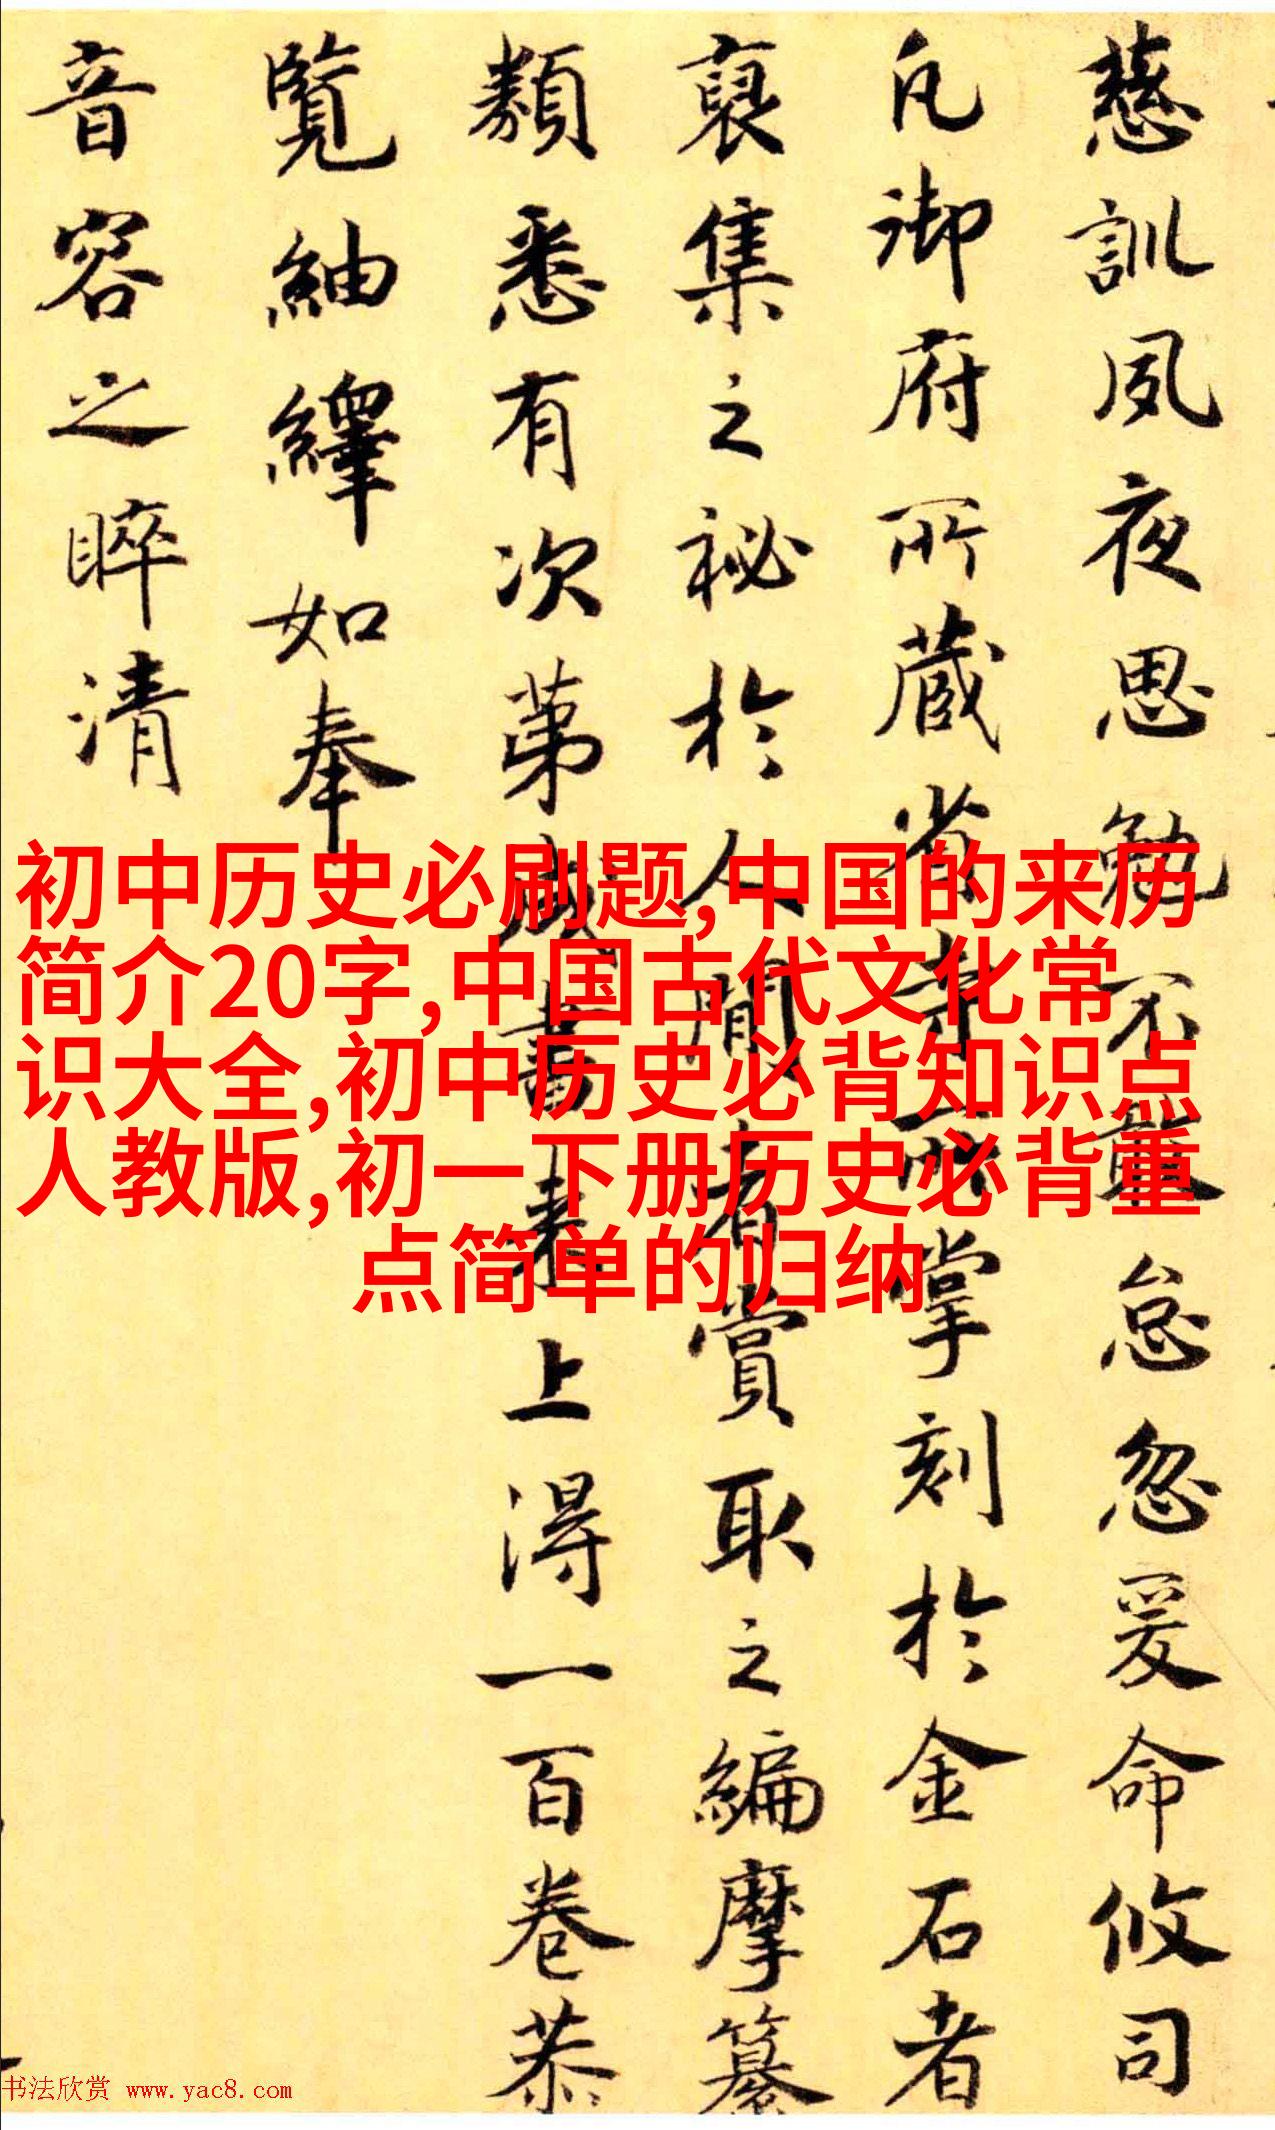 慈訓夙夜思勉不敢怠忽爰命攸司
凡御府所蔵省寺所掌刻於金石者
裒集之祕於人間者賞取之編摩纂
類悉有次苐成書来上得一百卷恭
覽紬繹如奉
音容之睟清
初中历史必刷题,中国的来历
简介20字,中国古代文化常
识大全,初中历史必背知识点
人教版,初一下册历史必背重
点简单的归纳
书法欣赏 www.yac8.com